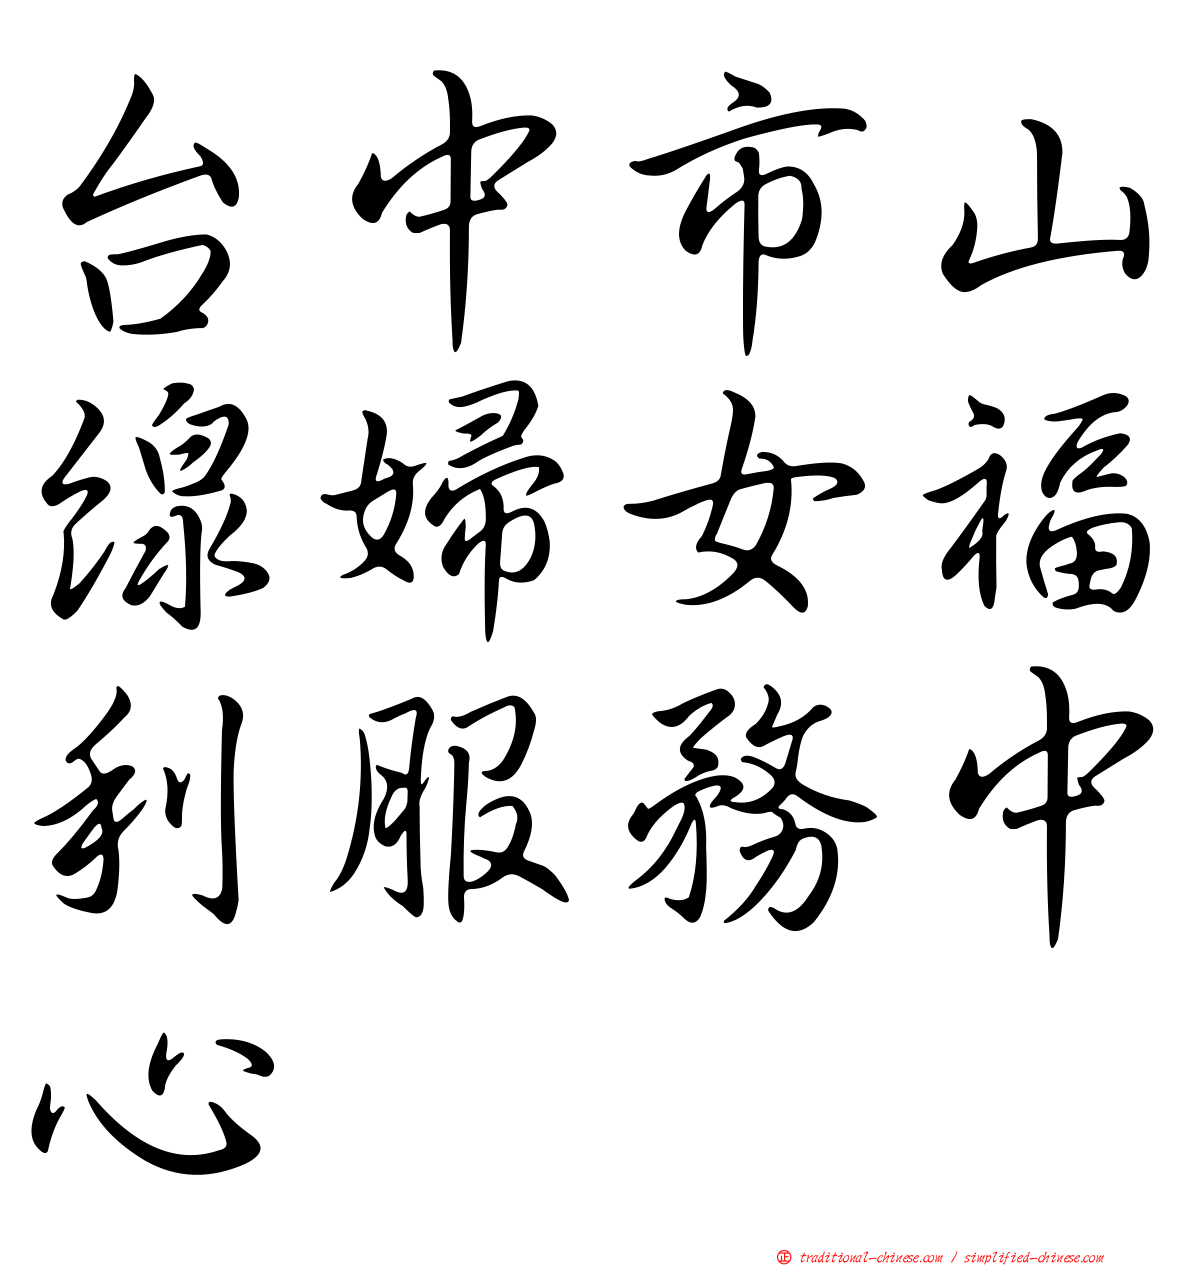 台中市山
線婦女福
利服務中
心
正 traditional-chinese.com / simplified-chinese.com